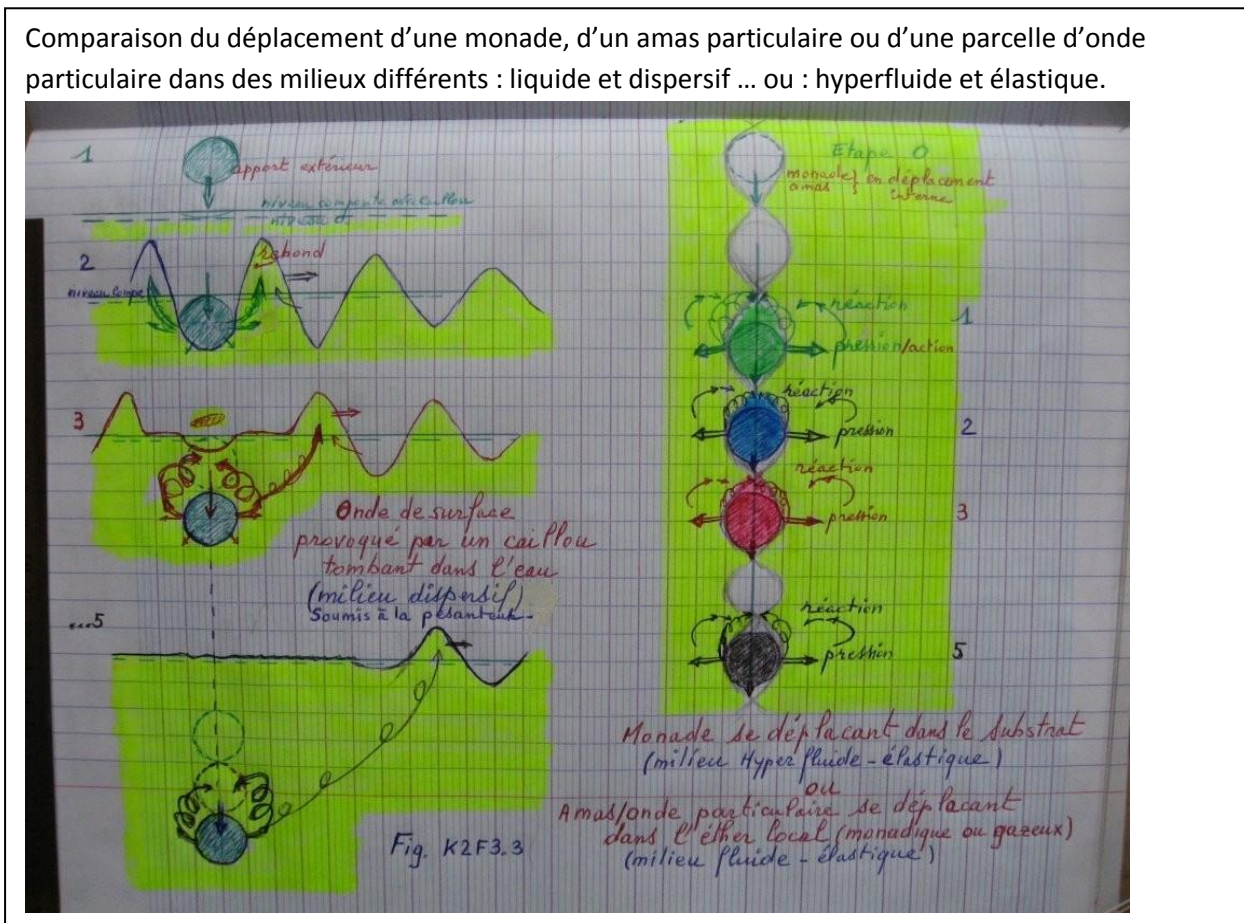 Comparaison du déplacement d’une monade, d’un amas particulaire ou d’une parcelle d’onde
particulaire dans des milieux différents : liquide et dispersif … ou : hyperfluide et élastique.
1
apport extérieur
niveau
niveau 0
2
rebond
niveau
3
Onde de surface
provoqué par un caillou
tombant dans l'eau
(milieu dispersif)
Soumis à la pesanteur-
...5
Fig. K2F3.3
Etape 0
monade } en déplacement
amas interne
réaction
1
pression/action
réaction
pression
2
réaction
pression
3
réaction
pression
5
Monade se déplacant dans le substrat
(milieu Hyper fluide - élastique)
ou
Amas/onde particulaire se déplacant
dans l'éther local (monadique ou gazeux)
(milieu fluide - élastique)